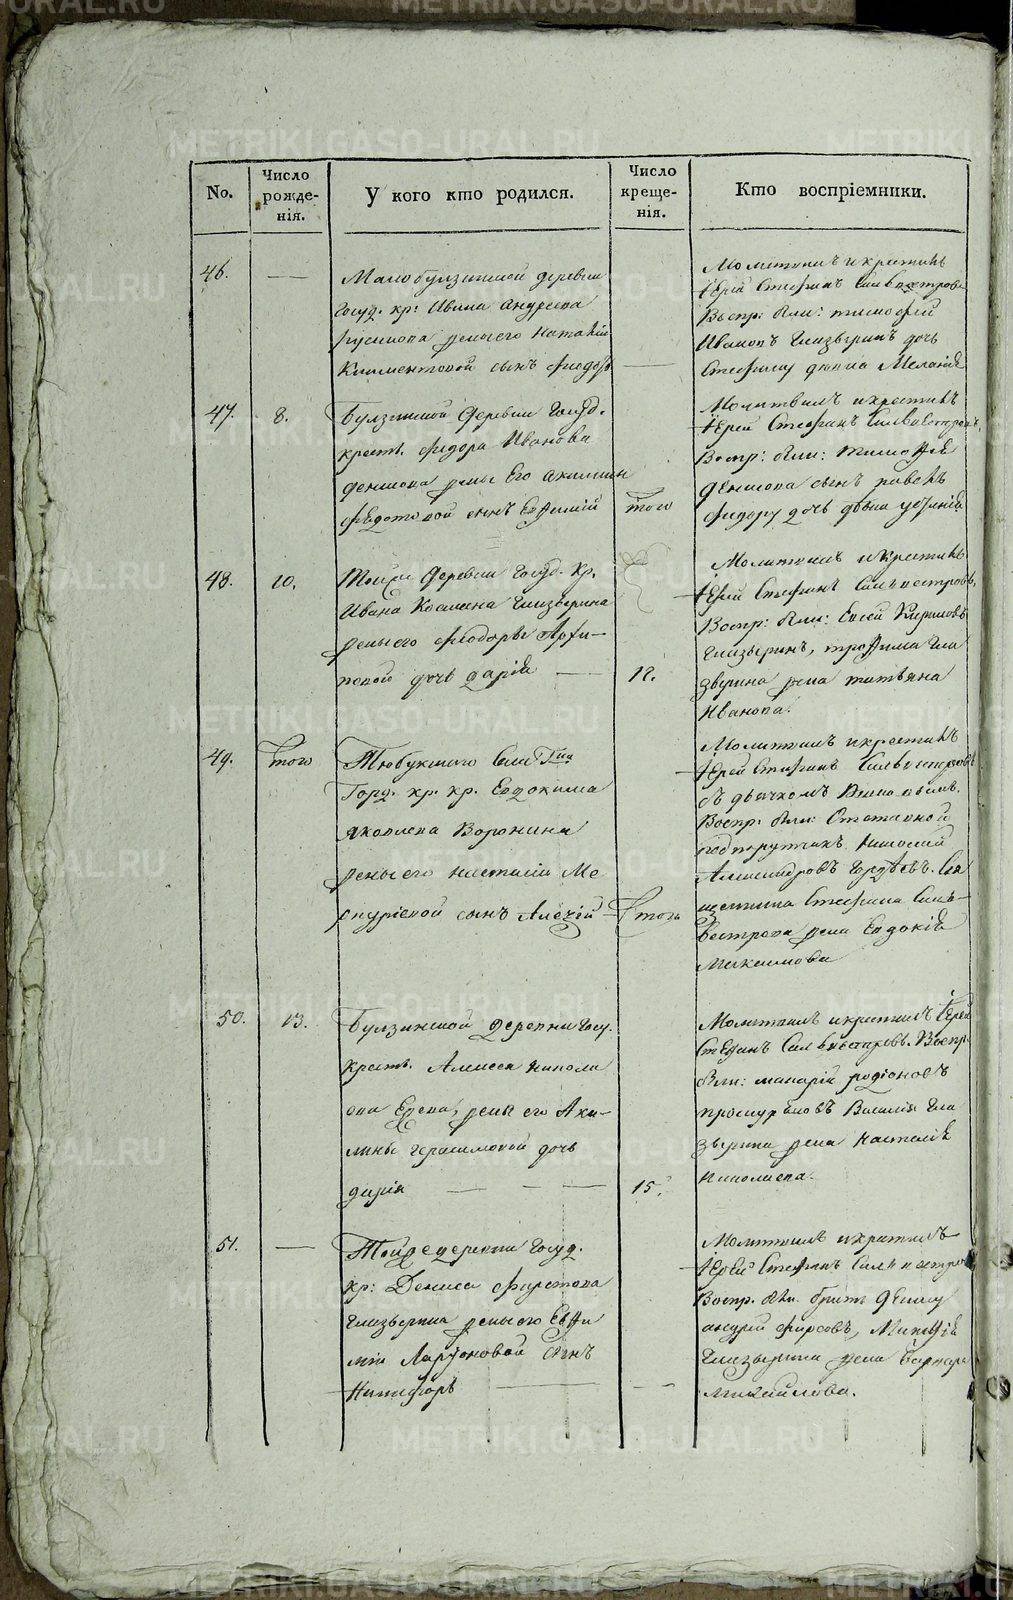 METRIKI.GASO-URAL.RU
No.
Число рожде- нія.
У кого кто родился.
Число креще- нія.
Кто воспріемники.
46.
деревни
Госуд. кр: Ивана Андреева
жены его Наталіи
Климентовой сынъ Феодоръ
Молитвилъ и крестилъ
Іерей Стефанъ Сильвестровъ
Воспр: были: Тимофей
Ивановъ Глазыринъ дочь
47.
8.
Булзинской деревни Госуд.
крест. Федора Иванова
жены Его Акилины
Федотовой сынъ Евфимій
того
Молитвилъ и крестилъ
Іерей Стефанъ Сильвестровъ
Воспр: были:
сынъ Павелъ
Федору дочь
48.
10.
Тойже деревни Госуд. кр.
Ивана Космина Глазырина
жены его Феодоры Архи-
повой дочь Дарія
12.
Молитвилъ и крестилъ
Іерей Стефанъ Сильвестровъ
Воспр: были: Елисей Кириловъ
Глазыринъ, Трофима Гла
зырина жена Татьяна
Иванова.
49.
того
Тюбукскаго села Гна
Горд. кр. кр. Евдокима
Яковлева Воронина
жены его Настасіи Ме
ркуріевой сынъ Алексій
того
Молитвилъ и крестилъ
Іерей Стефанъ Сильвестровъ
съ дьячкомъ
Воспр: были: Отставной
подпорутчикъ Николай
Александровъ Гордѣевъ. Свя
щенника Стефана Силь-
вестрова жена Евдокія
Максимова
50.
13.
Булзинской деревни Госу.
крест. Алексея Никола
ева жены его Аки-
лины Герасимовой дочь
Дарія
15.
Молитвилъ и крестилъ Іерей
Стефанъ Сильвестровъ. Воспр.
были: Макарій Родіоновъ
Василія Гла
зырина жена Наталія
Николаева.
51.
Тойже деревни Госуд.
кр: Дениса Фирсова
Глазырина жены его Евфи
міи Ларіоновой сынъ
Никифоръ
Молитвилъ и крестилъ
Іерей Стефанъ Сильвестров
Воспр. были братъ Денису
Андрей Фирсовъ,
Глазырина жена Варвара
Михайлова.